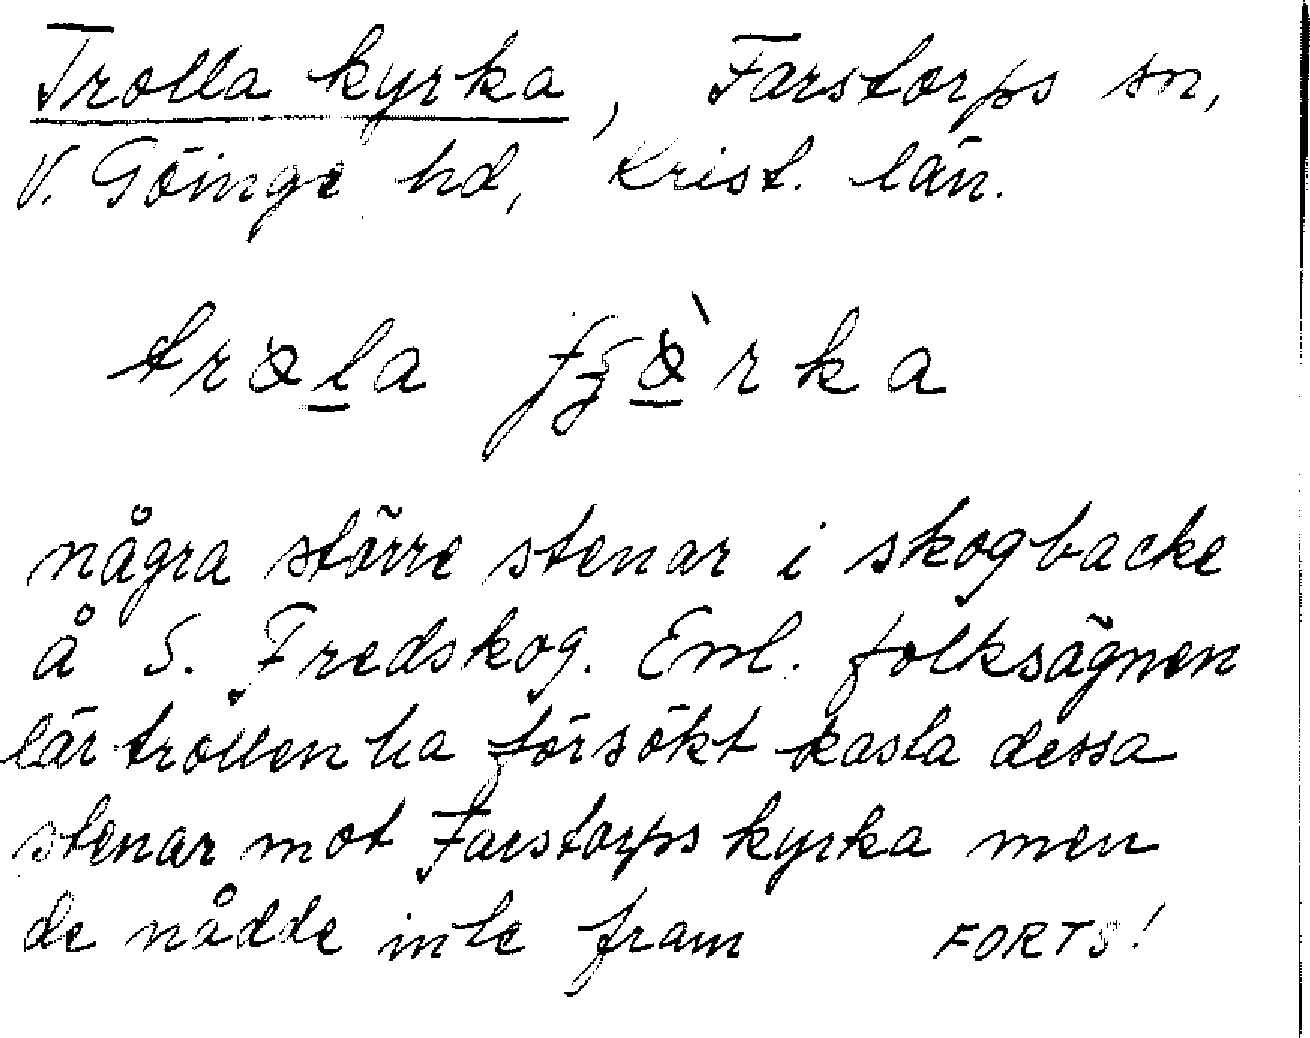 Trolla kyrka, Farstorps sn,
V. Göinge hd, Krist. län.
några större stenar i skogbacke
å S. Fredskog. Enl. folksägnen
lär trollen ha försökt kasta dessa
stenar mot Farstorps kyrka men
de nådde inte fram FORTS!